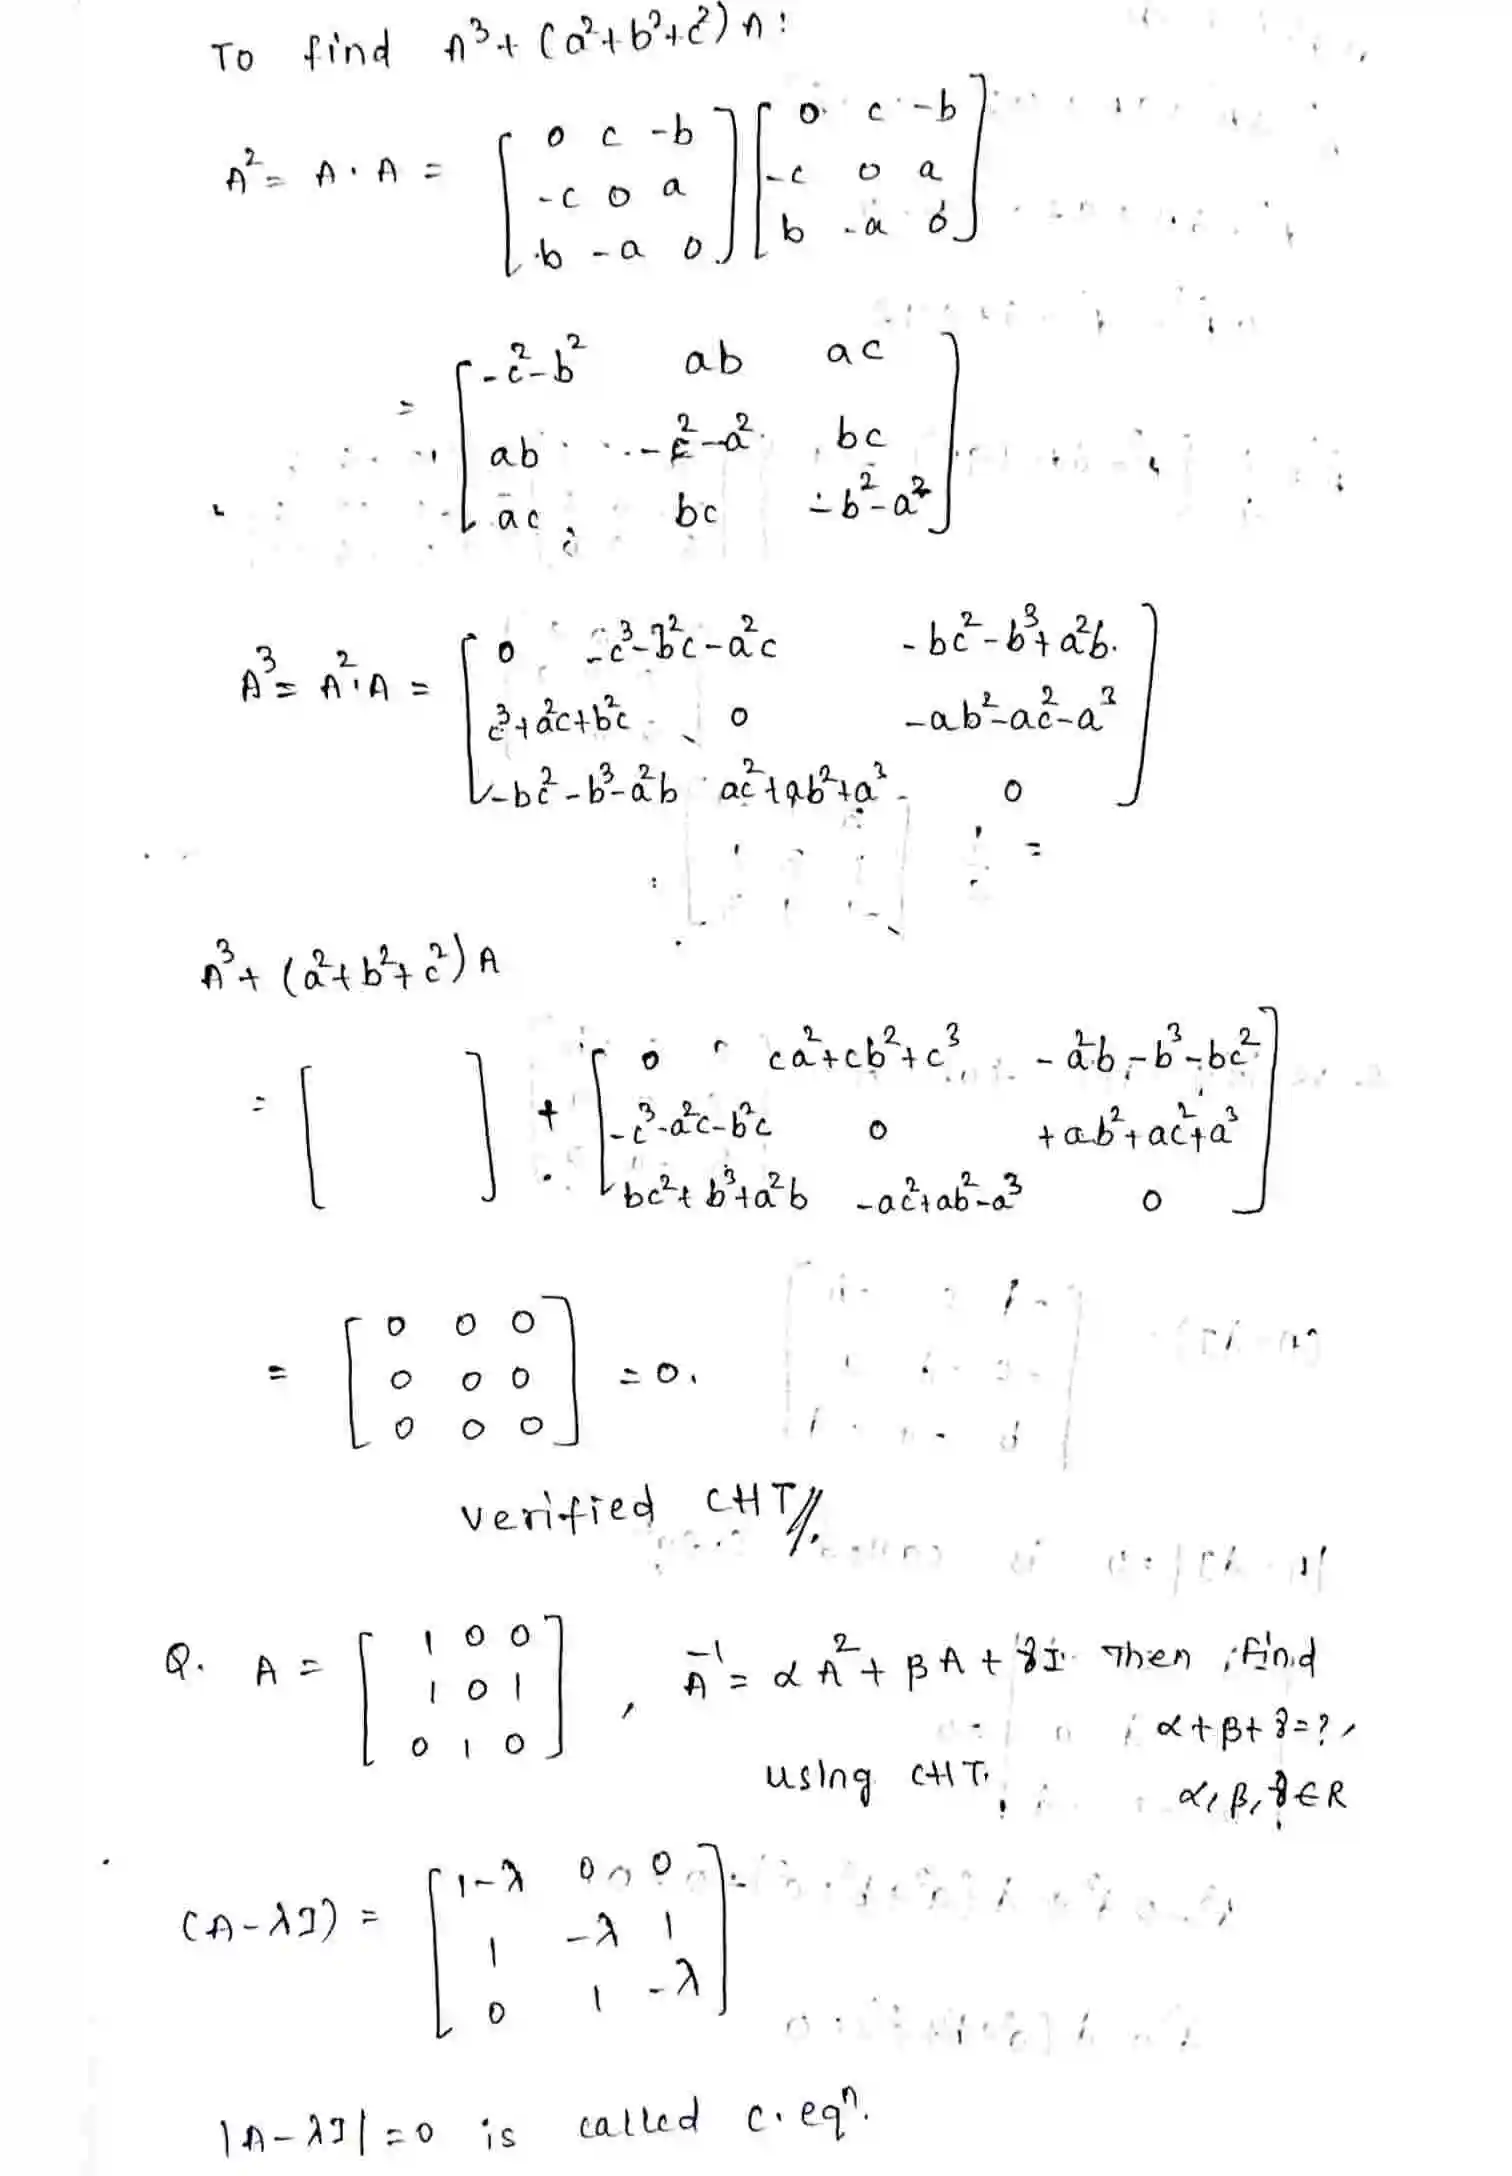 To find A³ + (a²+b²+c²) A:
A² = A · A = [ 0 c -b ; -c 0 a ; b -a 0 ] [ 0 c -b ; -c 0 a ; b -a 0 ]
= [ -c²-b² ab ac ; ab -c²-a² bc ; ac bc -b²-a² ]
A³ = A².A = [ 0 -c³-b²c-a²c -bc²-b³+a²b ; c³+a²c+b²c 0 -ab²-ac²-a³ ; -bc²-b³-a²b ac²+ab²+a³ 0 ]
A³ + (a²+b²+c²) A
= [ ] + [ 0 ca²+cb²+c³ -a²b-b³-bc² ; -c³-a²c-b²c 0 +ab²+ac²+a³ ; bc²+b³+a²b -ac²+ab²-a³ 0 ]
= [ 0 0 0 ; 0 0 0 ; 0 0 0 ] = 0.
verified CHT
Q. A = [ 1 0 0 ; 1 0 1 ; 0 1 0 ] , A⁻¹ = αA² + βA + γI Then find
α+β+γ=?,
using CHT. α, β, γ ∈ R
(A-λI) = [ 1-λ 0 0 ; 1 -λ 1 ; 0 1 -λ ]
|A-λI| = 0 is called c. eqⁿ.